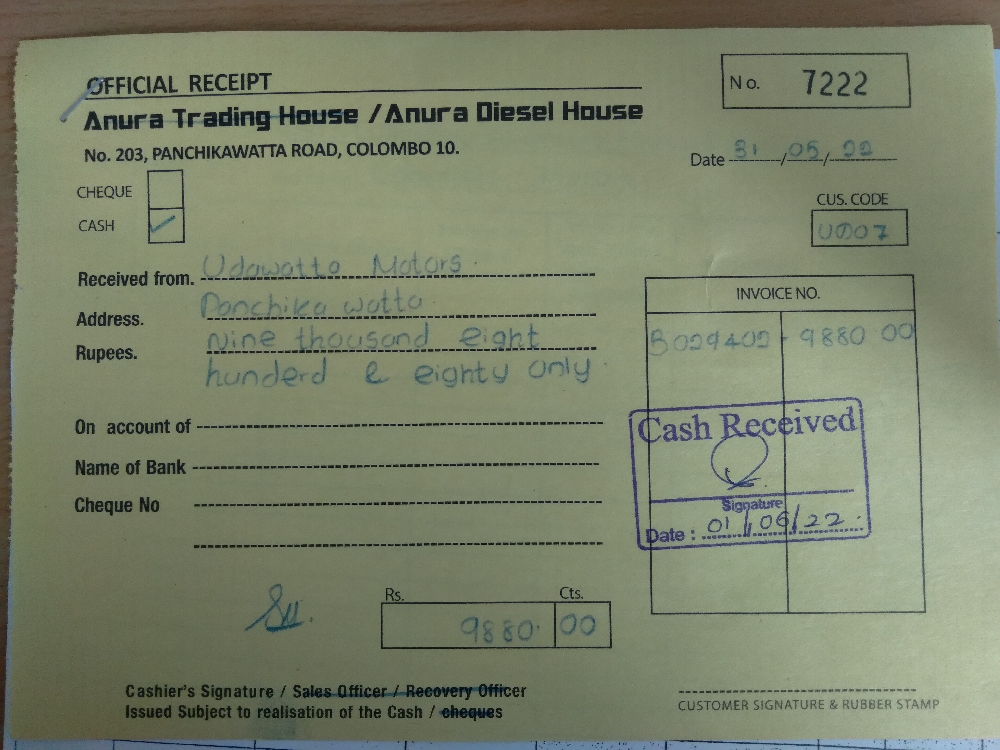 OFFICIAL RECEIPT
No. 7222
Anura Trading House / Anura Diesel House
No. 203, PANCHIKAWATTA ROAD, COLOMBO 10.
Date 31 / 05 / 22
CHEQUE
CASH ✓
CUS. CODE
U007
Received from. Udawatta Motors.
Address. Panchika watta
Rupees. Nine thousand eight
hunderd & eighty only.
INVOICE NO.
B029402 - 9880 00
On account of
Name of Bank
Cheque No
Cash Received
Signature
Date : 01/06/22.
Rs. Cts.
9880. 00
Cashier's Signature / Sales Officer / Recovery Officer
Issued Subject to realisation of the Cash / cheques
CUSTOMER SIGNATURE & RUBBER STAMP